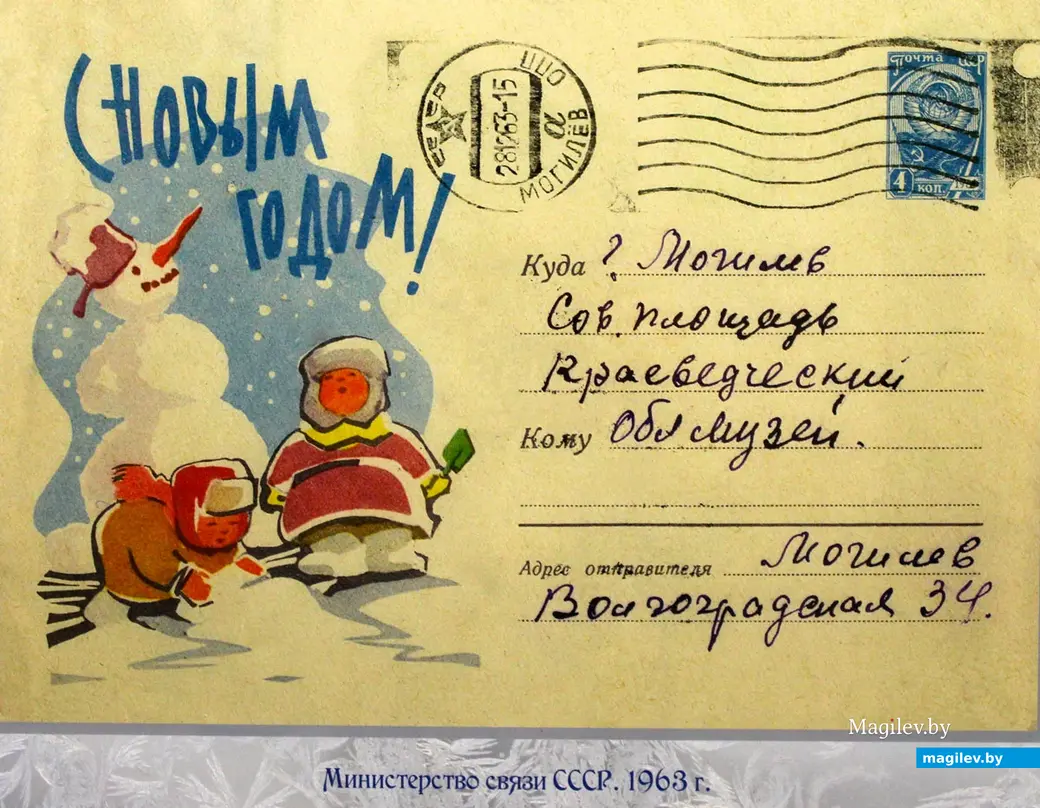 С НОВЫМ
ГОДОМ!
СССР
ЦПО
28 12 63-15
а
МОГИЛЁВ
Почта СССР
4 коп.
Куда г. Могилев
Сов. площадь
Краеведческий
Кому Обл музей.
Адрес отправителя Могилев
Волгоградская 34.
Magilev.by
magilev.by
Министерство связи СССР. 1963 г.